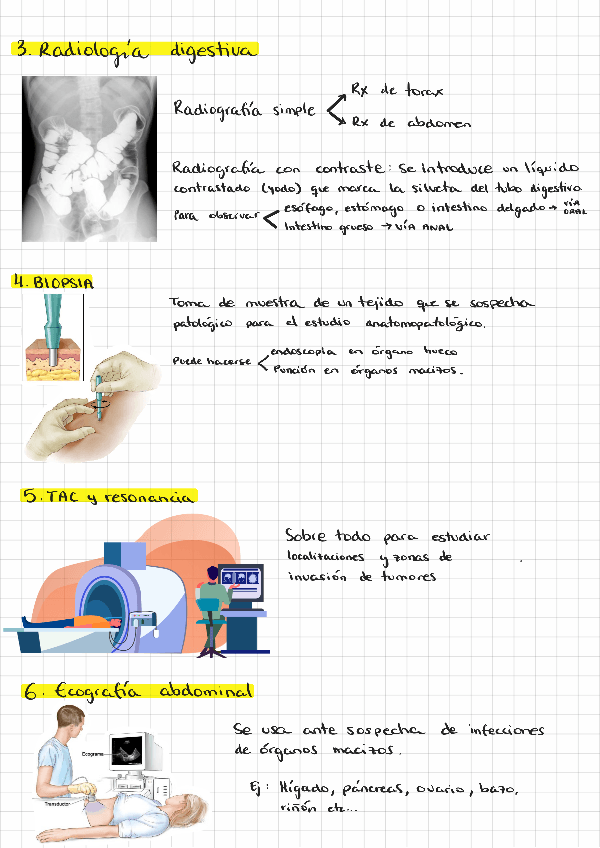 3. Radiología digestiva
Radiografía simple
Rx de torax
Rx de abdomen
Radiografía con contraste: Se introduce un líquido
contrastado (yodo) que marca la silueta del tubo digestivo
Para observar
esófago, estómago o intestino delgado → VÍA ORAL
Intestino grueso → VÍA ANAL
4. BIOPSIA
Toma de muestra de un tejido que se sospecha
patológico para el estudio anatomopatológico.
Puede hacerse
endoscopia en órgano hueco
Punción en órganos macizos.
5. TAC y resonancia
Sobre todo para estudiar
localizaciones y zonas de
invasión de tumores
6. Ecografía abdominal
Se usa ante sospecha de infecciones
de órganos macizos.
Ecograma
Transductor
Ej: Hígado, páncreas, ovario, bazo,
riñón etc...